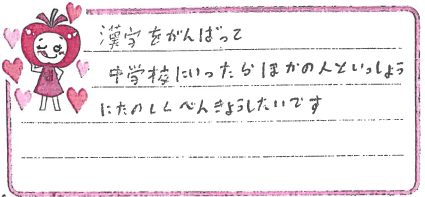 漢字をがんばって
中学校にいったらほかの人といっしょう
にたのしくべんきょうしたいです